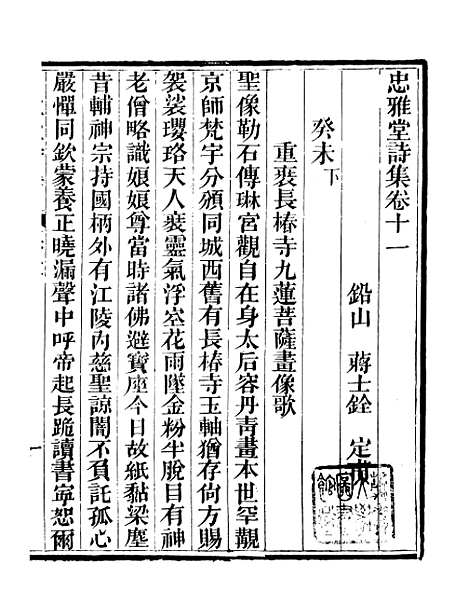 忠雅堂詩集卷十一
鉛山　蔣士銓　定甫
癸未下
重裝長椿寺九蓮菩薩畫像歌
聖像勒石傳琳宮觀自在身太后容丹靑畫本世罕覯
京師梵宇分頒同城西舊有長椿寺玉軸猶存尙方賜
袈裟瓔珞天人裴靈氣浮空花雨墜金粉半脫目有神
老僧略識娘娘尊當時諸佛避寶座今日故紙黏梁塵
昔輔神宗持國柄外有江陵內慈聖諒闇不負託孤心
嚴憚同欽蒙養正曉漏聲中呼帝起長跪讀書寧恕爾
一